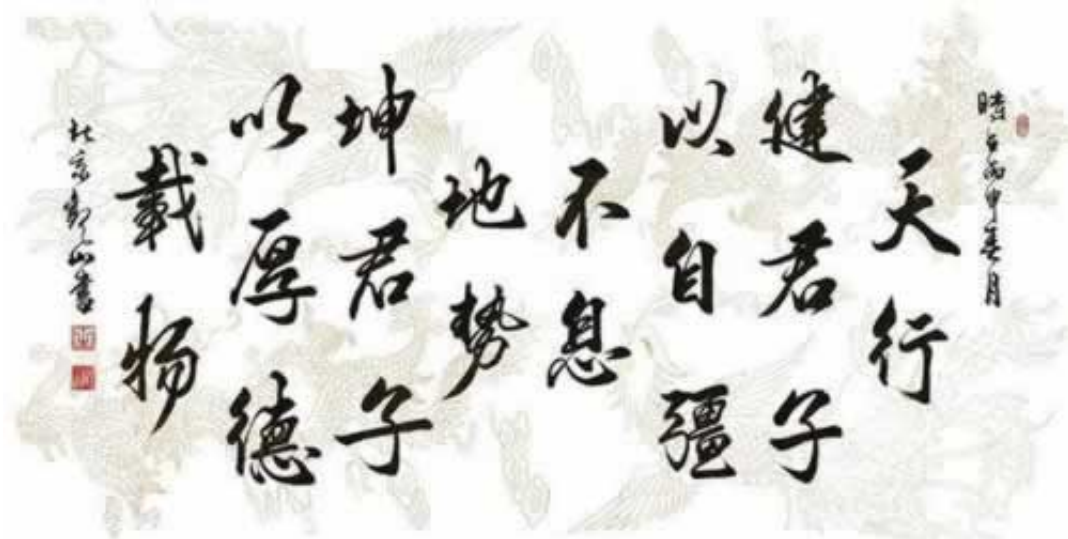 時在丙申春月
天行
健君子
以自彊
不息
地勢
坤君子
以厚德
載物
北京鄭山書